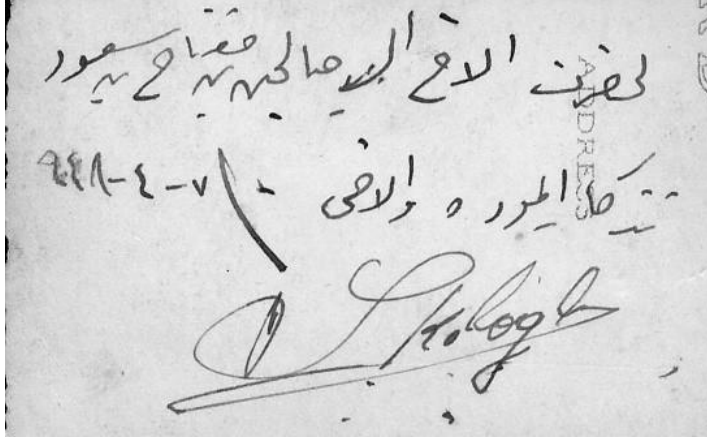 لحضرت الاخ السيد صالحين بن مفتاح بن سعود
تذكار المودة والاخى - ٧-٤-٩٤٨
ADDRESS